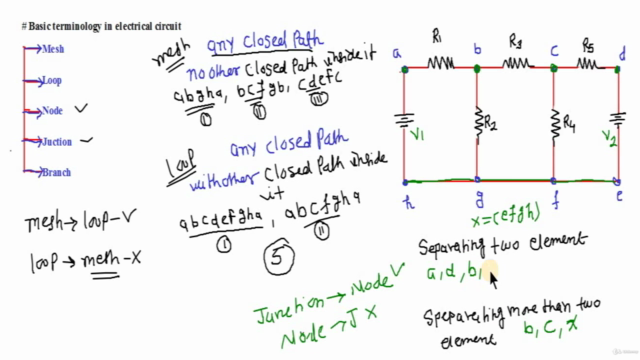 # Basic terminology in electrical circuit
Mesh
Loop
Node ✓
Juction ✓
Branch
mesh → loop - ✓
loop → mesh - X
mesh any closed Path
no other closed Path inside it
abgha, bcfgb, cdefc
I II III
Loop any closed Path
with other closed Path inside
it
abcdefgha, abcfgha
I II
5
Junction → Node ✓
Node → J X
a R1 b R3 c R5 d
V1 R2 R4 V2
h g f e
x = (efgh)
Separating two element
a, d, b,
Speparating more than two
element b, c, x
udemy